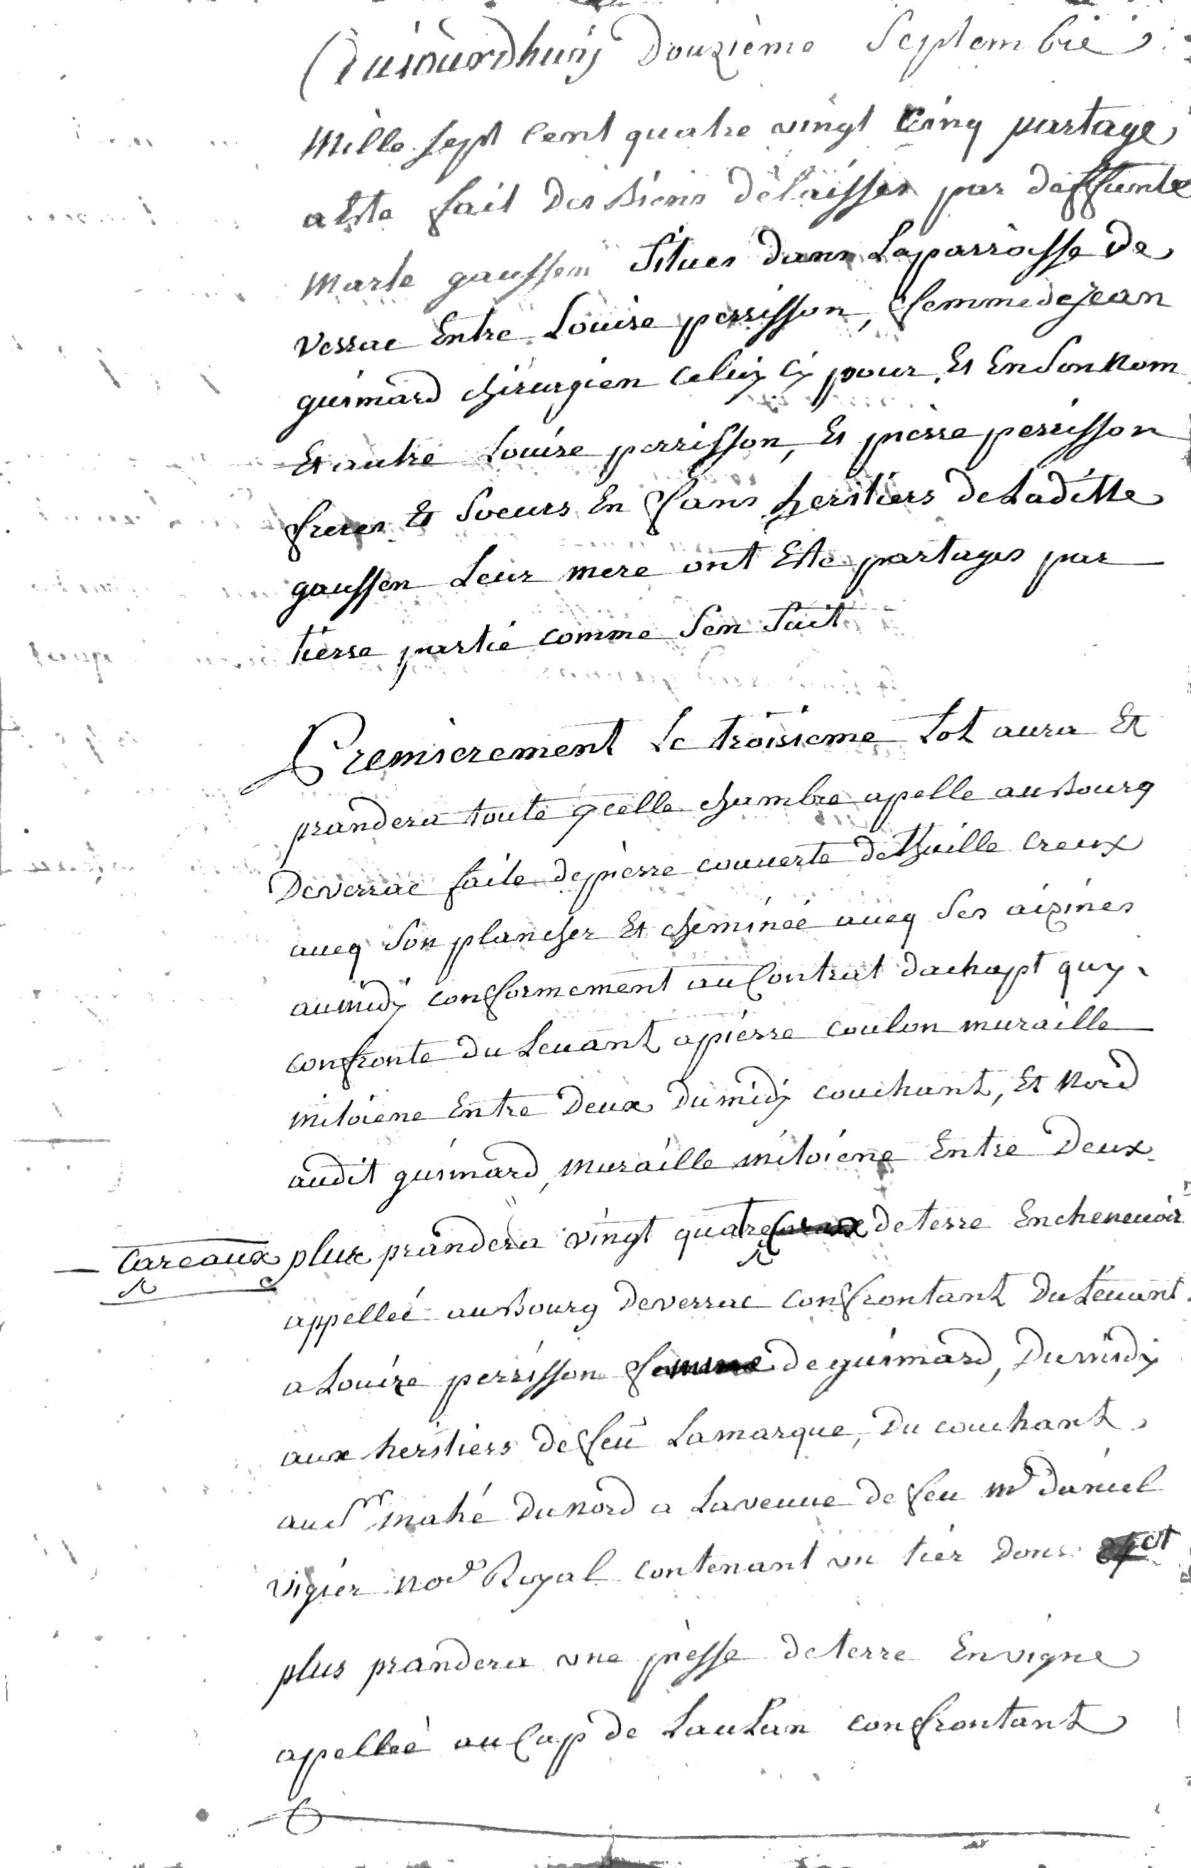 Aujourdhuij Douzième Septembre
Mille Sept Cent quatre vingt Cinq partage
a Esté fait des Biens délaisses par deffunte
Marte gaussen Situés dans Laparroisse de
verrac Entre Louise perrisson, femme de jean
guimard chirurgien Celuy Cy pour Et En Son Nom
Et autre Louise perrisson, Et pierre perrisson
freres Et Soeurs En fans heritiers de Laditte
gaussen Leur mere ont Esté partagés par
tierse partie comme Sen Suit
Premierement Le troisieme Lot aura Et
prandera toute ycelle chambre apelle au Bourg
De verrac faite de pierre couuerte de Thuille Creux
aueq Son plancher Et cheminée aueq Ses aizines
au midy conformement au Contrat dachapt quy
confronte du Leuant a pierre coulon muraille
mitoiene Entre Deux du midy couchant, Et Nord
audit guimard, muraille mitoiéne Entre Deux
Careaux plus prandera vingt quatre de terre En cheneuoir
appelleé au Bourg de verrac confrontant Du Leuant
a Louize perrisson femme de guimard, Du midy
aux heritiers de feu Lamarque, Du couchant
au Sr mahé Du Nord a La veuue de feu mr Daniel
vigier Nore Royal contenant un tier dons
plus prandera une piesse de terre En vigne
apelleé au Cap de Laulan confrontant